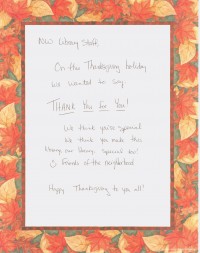 NW Library Staff
On this Thanksgiving holiday
we wanted to say
THANK You For You!
We think you're special
We think you make this
library our library. Special too!
Friends of the neighborhood
Happy Thanksgiving to you all!